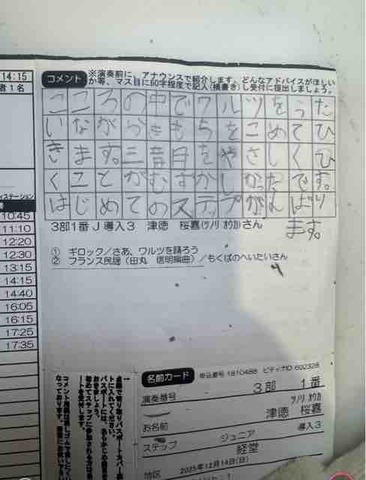 14:15
者1名
ステーション
10:45
11:10
12:20
12:30
13:15
14:15
14:40
16:05
16:25
17:25
17:35
コメント
※演奏前に、アナウンスで紹介します。どんなアドバイスがほしい
か等、マス目に60字程度で記入(横書き)し受付に提出しましょう。
こころの中でワルツをうた
いながらきもちをこめてひ
きます。三音目をやさしくひ
くことがむずかしかったです。
はじめてのステップがんばり
ます。
3部1番 J 導入3 津徳 桜嘉(ツノリ オウカ)さん
① ギロック/さあ、ワルツを踊ろう
② フランス民謡(田丸 信明編曲)/もくばのへいたいさん
名前カード
申込番号 1810488 ピティナID 602328
演奏番号 3部 1番
ツノリ オウカ
お名前 津徳 桜嘉
ステップ ジュニア 導入3
地区 経堂
2025年12月14日(日)